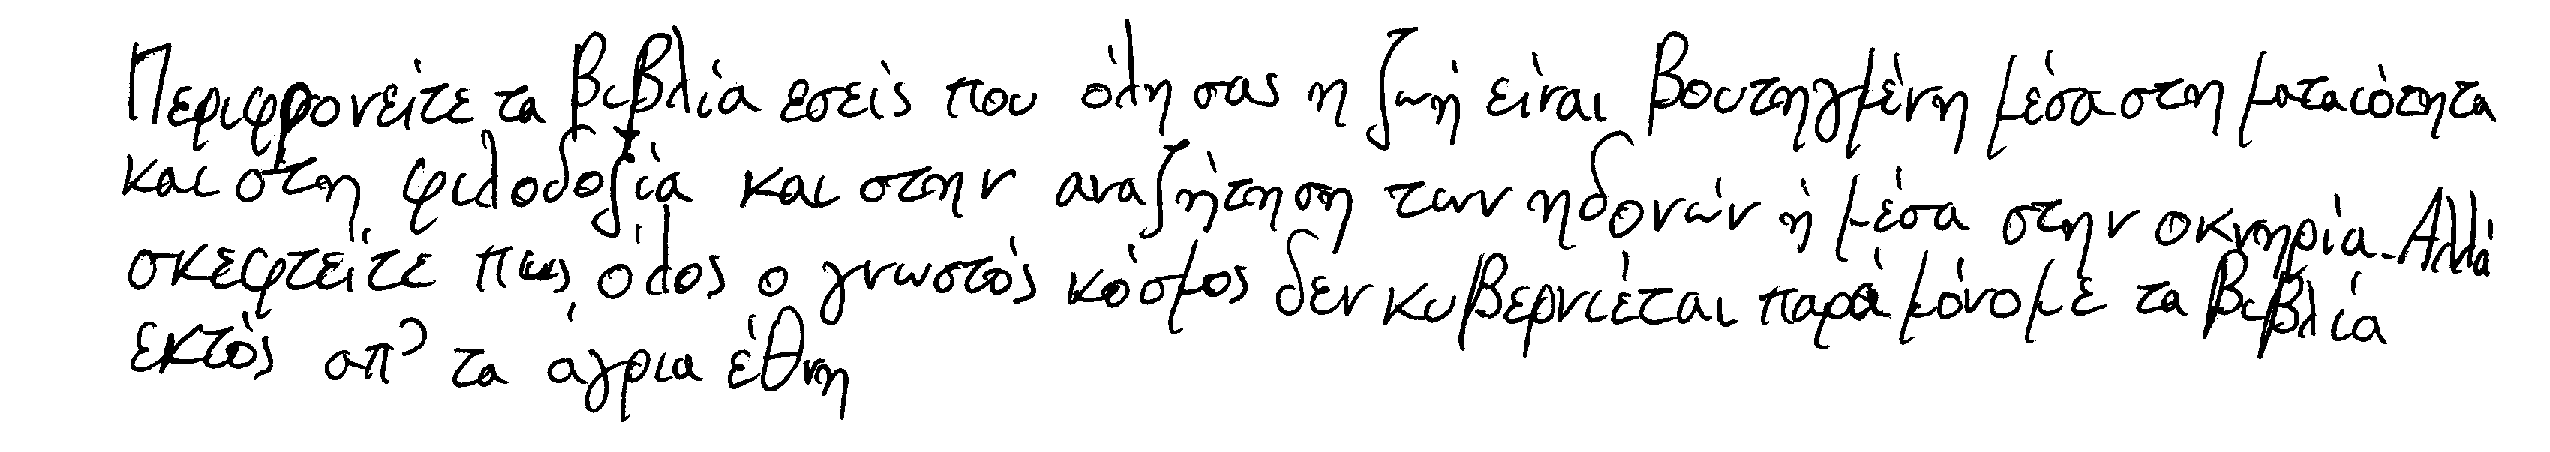 Περιφρονείτε τα βιβλία εσείς που όλη σας η ζωή είναι βουτηγμένη μέσα στη ματαιότητα
και στη φιλοδοξία και στην αναζήτηση των ηδονών ή μέσα στην οκνηρία. Αλλά
σκεφτείτε πως όλος ο γνωστός κόσμος δεν κυβερνιέται παρά μόνο με τα βιβλία
εκτός απ' τα άγρια έθνη